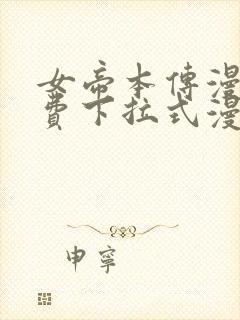 女帝本傳漫
費下拉式漫
申寧